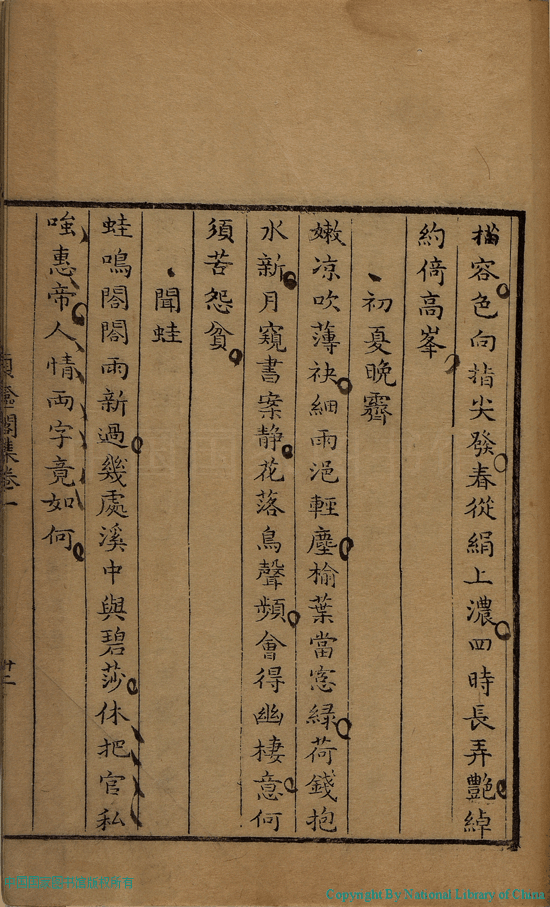 描容色向指尖發春從絹上濃四時長弄艷綽
約倚高峯
初夏晚霽
嫩凉吹薄袂細雨浥輕塵榆葉當窓綠荷錢抱
水新月窺書案静花落鳥聲頻會得幽棲意何
須苦怨貧
聞蛙
蛙鳴閣閣雨新過幾處溪中與碧莎休把官私
嗤惠帝人情两字竟如何
閣集卷一
廿二
Copyright By National Library of China